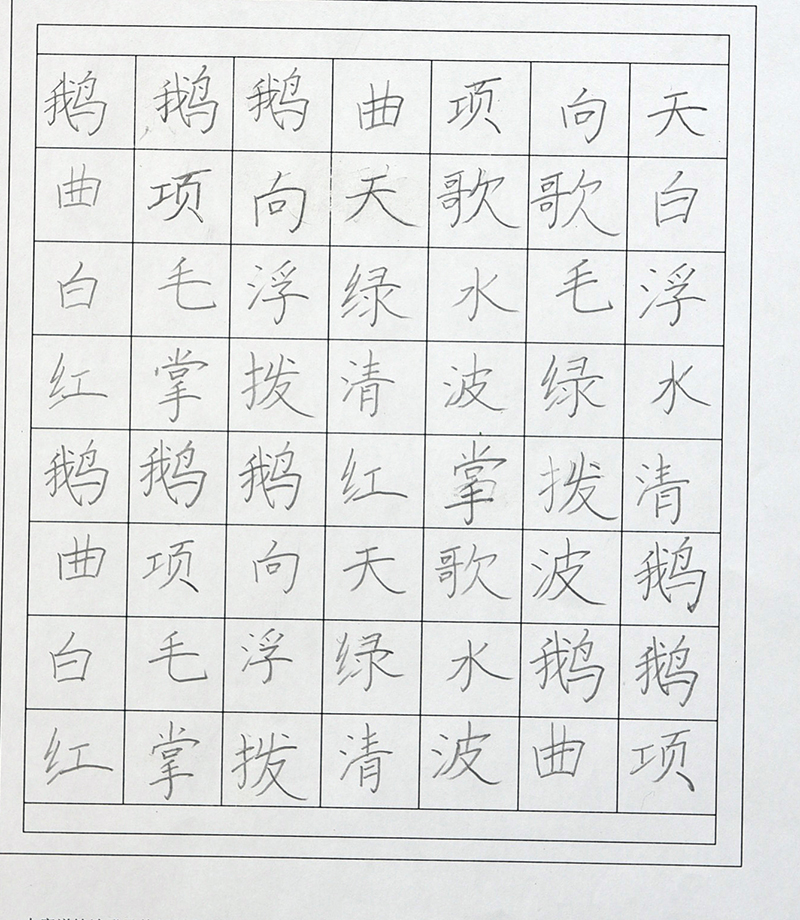 鹅鹅鹅曲项向天
曲项向天歌歌白
白毛浮绿水毛浮
红掌拨清波绿水
鹅鹅鹅红掌拨清
曲项向天歌波鹅
白毛浮绿水鹅鹅
红掌拨清波曲项